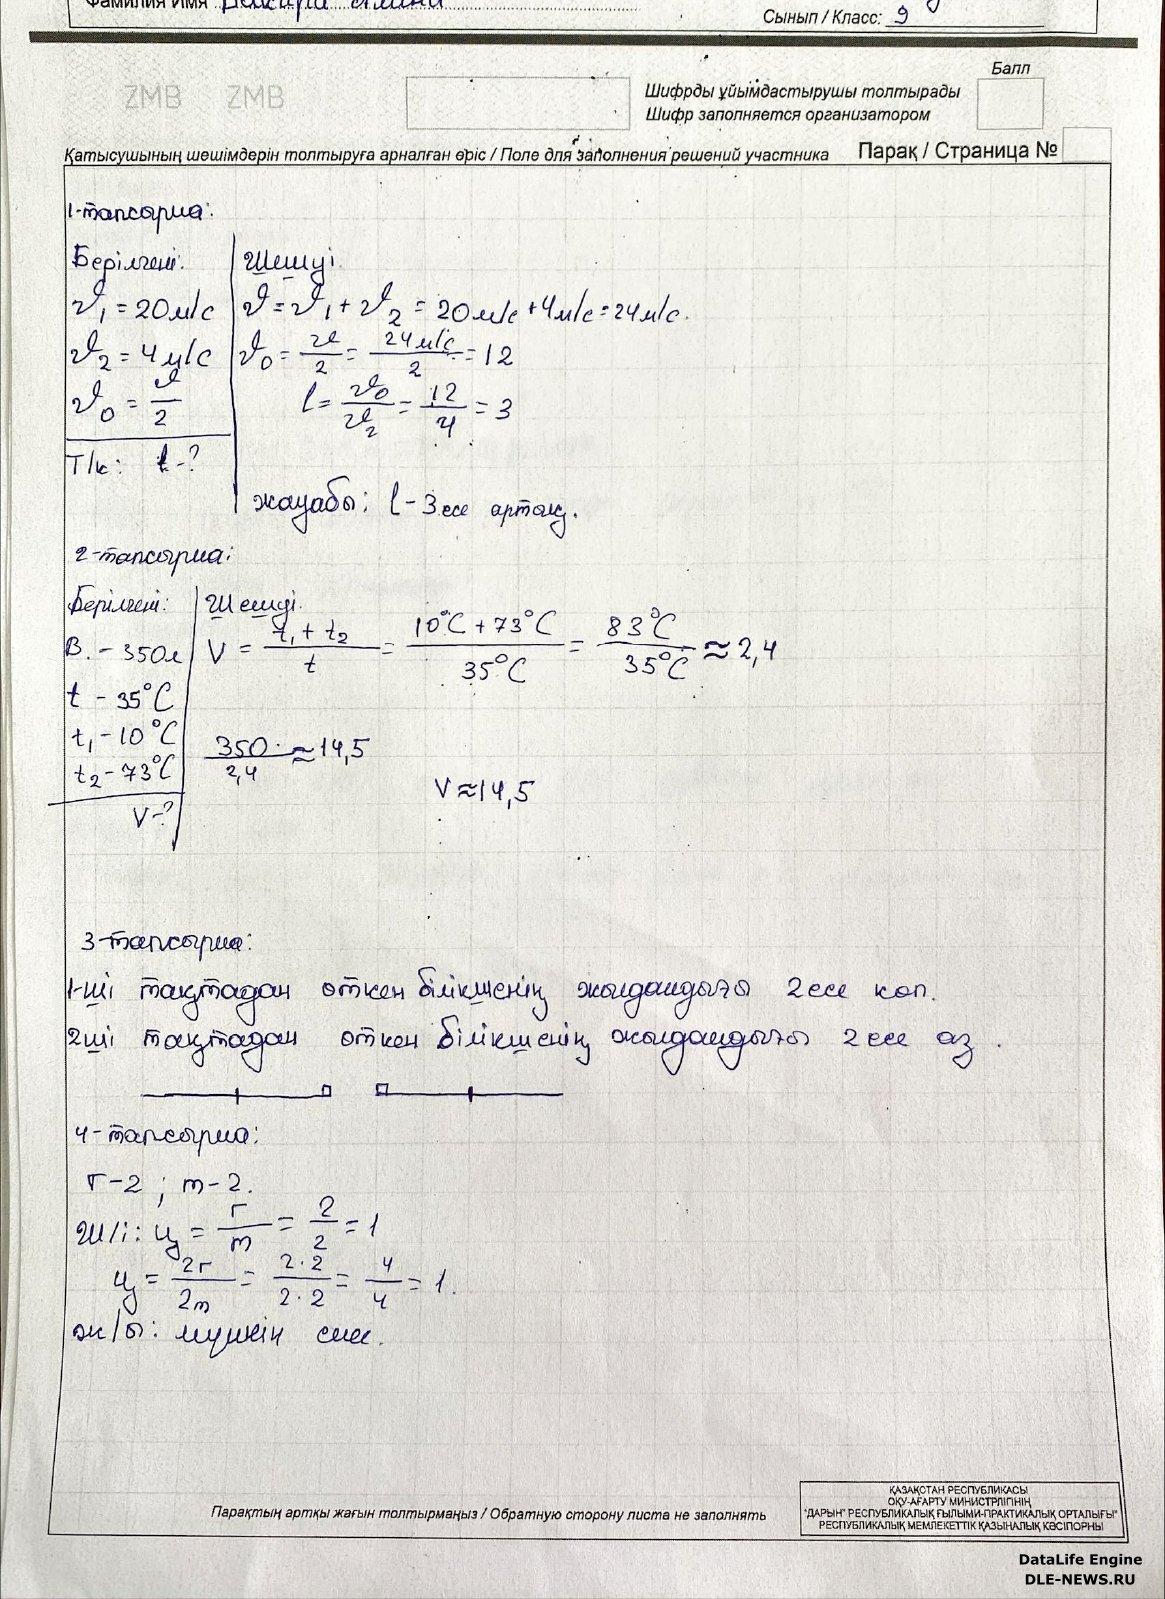 Фамилия Имя
Сынып / Класс: 9
Балл
ZMB ZMB
Шифрды ұйымдастырушы толтырады
Шифр заполняется организатором
Қатысушының шешімдерін толтыруға арналған өріс / Поле для заполнения решений участника Парақ / Страница №
1-тапсырма:
Берілгені: Шешуі.
𝜗₁ = 20м/с 𝜗 = 𝜗₁ + 𝜗₂ = 20м/с + 4м/с = 24м/с.
𝜗₂ = 4м/с 𝜗₀ = 𝜗/2 = 24м/с/2 = 12
𝜗₀ = 𝜗/2 l = 𝜗₀/𝜗₂ = 12/4 = 3
Т/к: -?
жауабы: l - 3 есе артық.
2-тапсырма:
Берілгені: Шешуі.
В. - 350л V = t₁ + t₂/t = 10°C + 73°C/35°C = 83°C/35°C ≈ 2,4
t - 35°C
t₁ - 10°C 350/2,4 ≈ 14,5
t₂ - 73°C
V ≈ 14,5
V - ?
3-тапсырма:
1-ші тақтадан өткен білікшенің жылдамдығы 2 есе көп.
2ші тақтадан өткен білікшенің жылдамдығы 2 есе аз.
4-тапсырма:
r-2 ; m-2.
Ш/і: = r/m = 2/2 = 1
= 2r/2m = 2·2/2·2 = 4/4 = 1.
ж/ы: мүмкін емес.
Парақтың артқы жағын толтырмаңыз / Обратную сторону листа не заполнять
ҚАЗАҚСТАН РЕСПУБЛИКАСЫ
ОҚУ-АҒАРТУ МИНИСТРЛІГІНІҢ
"ДАРЫН" РЕСПУБЛИКАЛЫҚ ҒЫЛЫМИ-ПРАКТИКАЛЫҚ ОРТАЛЫҒЫ"
РЕСПУБЛИКАЛЫҚ МЕМЛЕКЕТТІК ҚАЗЫНАЛЫҚ КӘСІПОРНЫ
DataLife Engine
DLE-NEWS.RU